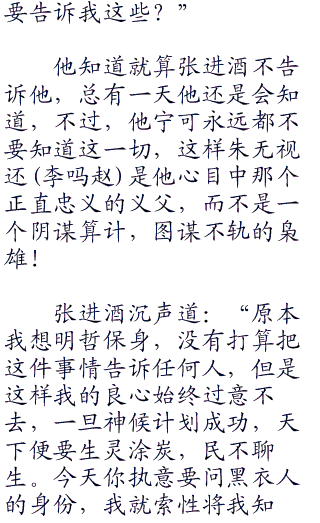 要告诉我这些？”
他知道就算张进酒不告
诉他，总有一天他还是会知
道，不过，他宁可永远都不
要知道这一切，这样朱无视
还(李吗赵)是他心目中那个
正直忠义的义父，而不是一
个阴谋算计，图谋不轨的枭
雄！
张进酒沉声道：“原本
我想明哲保身，没有打算把
这件事情告诉任何人，但是
这样我的良心始终过意不
去，一旦神候计划成功，天
下便要生灵涂炭，民不聊
生。今天你执意要问黑衣人
的身份，我就索性将我知